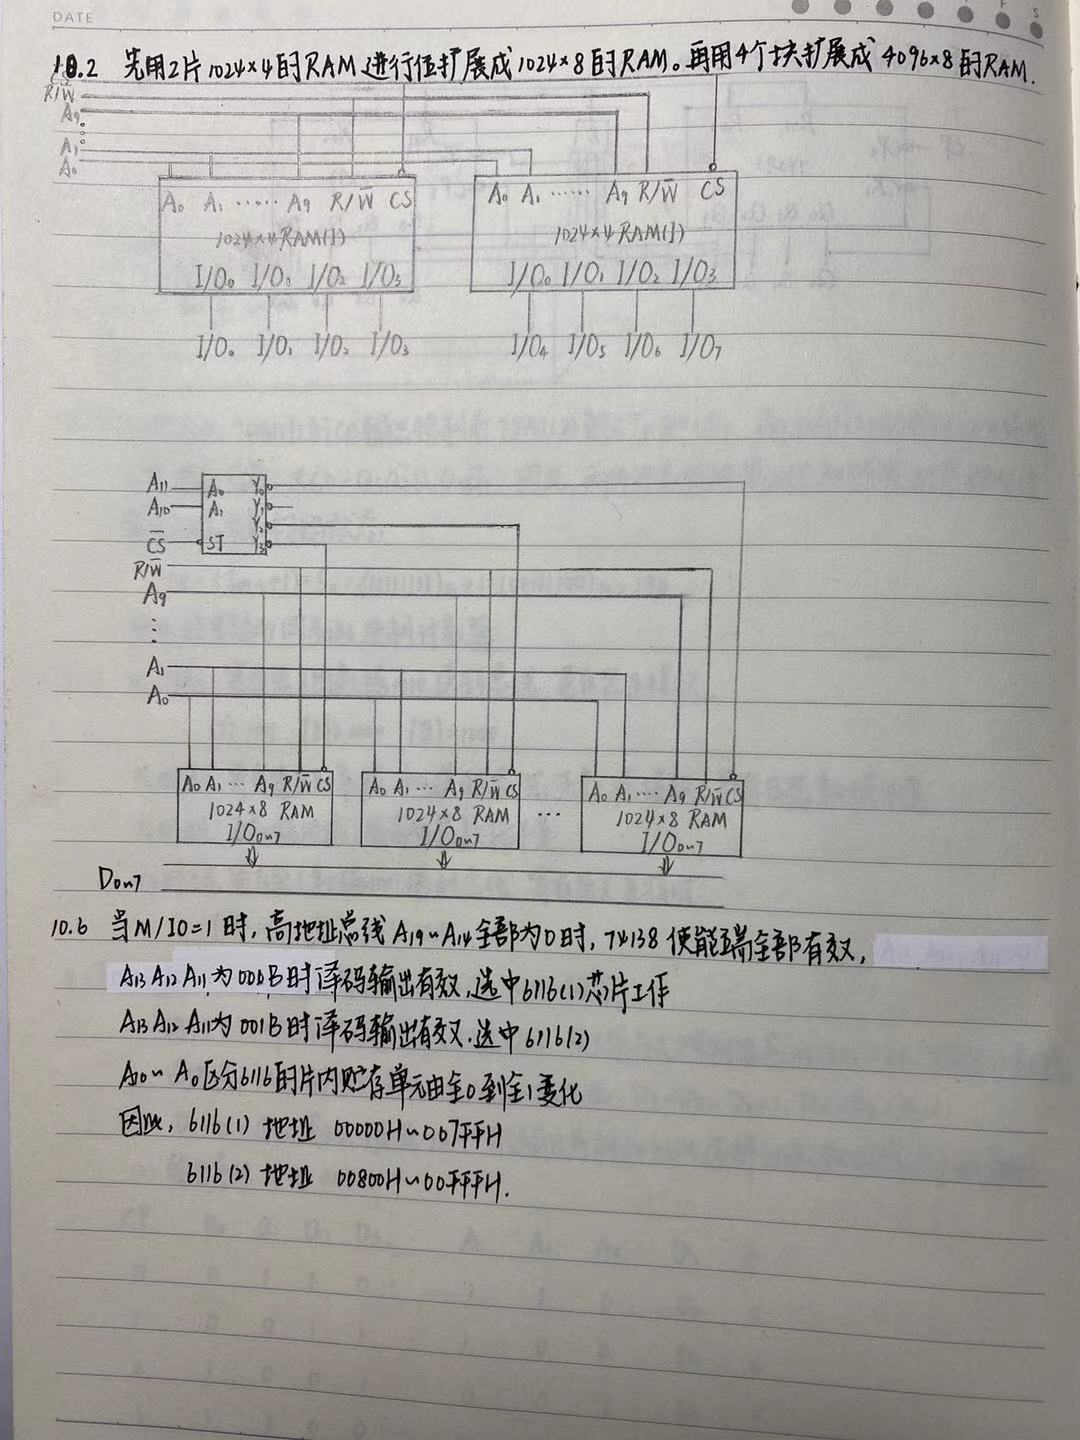 DATE
10.2 先用2片1024×4的RAM进行位扩展成1024×8的RAM。再用4个块扩展成4096×8的RAM.
R/W̅
A₉
⋮
A₁
A₀
A₀ A₁ ······ A₉ R/W̅ CS
1024×4RAM(1)
I/O₀ I/O₁ I/O₂ I/O₃
I/O₀ I/O₁ I/O₂ I/O₃
A₀ A₁ ······ A₉ R/W̅ CS
1024×4RAM(1)
I/O₀ I/O₁ I/O₂ I/O₃
I/O₄ I/O₅ I/O₆ I/O₇
A₁₁ A₀ Y₀
A₁₀ A₁ Y₁
Y₂
C̅S̅ ST Y₃
R/W̅
A₉
⋮
A₁
A₀
A₀ A₁ ··· A₉ R/W̅ CS
1024×8 RAM
I/O₀~₇
A₀ A₁ ··· A₉ R/W̅ CS
1024×8 RAM
I/O₀~₇
···
A₀ A₁ ··· A₉ R/W̅ CS
1024×8 RAM
I/O₀~₇
D₀~₇
10.6 当M/IO=1时,高地址总线A₁₉~A₁₄全部为0时,74138使能端全部有效,
A₁₃A₁₂A₁₁为000B时译码输出有效,选中6116(1)芯片工作
A₁₃A₁₂A₁₁为001B时译码输出有效.选中6116(2)
A₁₀~A₀区分6116的片内贮存单元由全0到全1变化
因此, 6116(1) 地址 00000H~007FFH
6116(2) 地址 00800H~00FFFH.